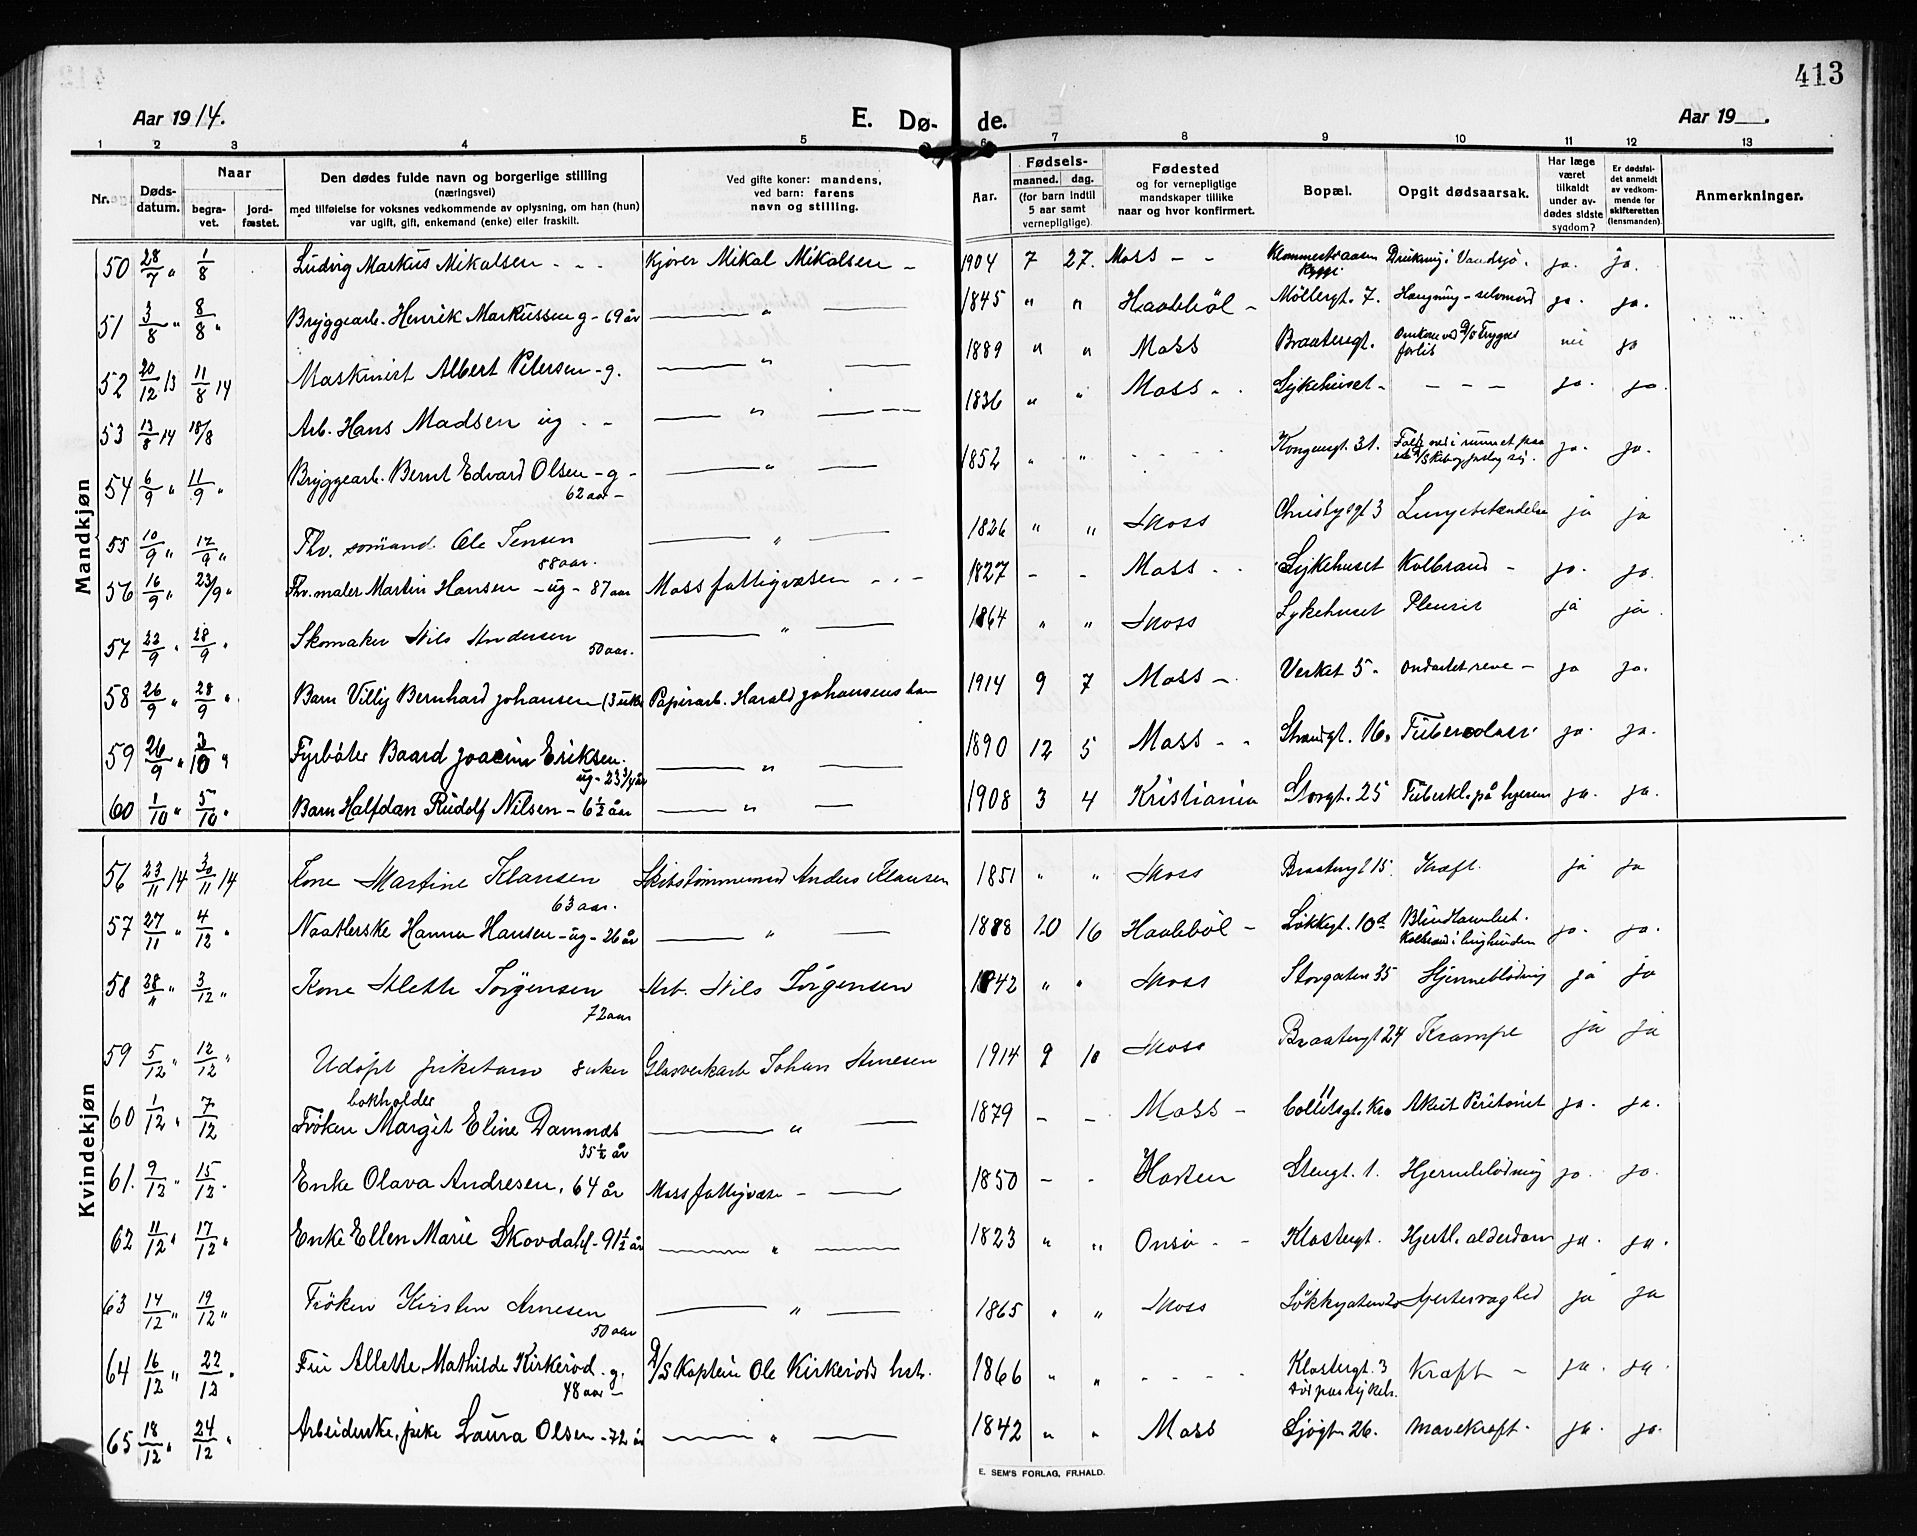 413
Aar 1914.
E. Dø- de.
Aar 19 .
1 2 3 4 5 6 7 8 9 10 11 12 13
Nr.
Døds-
datum.
Naar
begra-
vet.
jord-
fæstet.
Den dødes fulde navn og borgerlige stilling
(næringsvei)
med tilføielse for voksnes vedkommende av oplysning, om han (hun)
var ugift, gift, enkemand (enke) eller fraskilt.
Ved gifte koner: mandens,
ved barn: farens
navn og stilling.
Aar.
Fødsels-
maaned. dag.
(for barn indtil
5 aar samt
vernepligtige).
Fødested
og for vernepligtige
mandskaper tillike
naar og hvor konfirmert.
Bopæl.
Opgit dødsaarsak.
Har læge
været
tilkaldt
under av-
dødes sidste
sygdom?
Er dødsfal-
det anmeldt
av vedkom-
mende for
skifteretten
(lensmanden).
Anmerkninger.
Mandkjøn
50 28/7 " 1/8 Ludvig Markus Mikalsen - - Kjører Mikal Mikalsen - 1904 7 27. Moss - - Drukning i Vandsjø. ja. Ja.
51 3/8 " 8/8 " Bryggearb. Henrik Markussen g - 69 år " 1845 " " Haabøl - Møllergt. 7. Hængning - selvmord ja. ja.
52 20/12 13 11/8 14 Maskinist Albert Petersen - g. " 1889 " " Moss Braatengt. Omkom ved D/S Trygves forlis nei ja
53 13/8 14 18/8 Arb. Hans Madsen ug - - " 1836 " " Moss - . Sykehuset - - - - ja. ja.
54 6/9 " 11/9 " Bryggearb. Bernt Edvard Olsen - g - " 1852 " " - - - - Kongensgt. 31. ja. ja.
62 aar -
55 10/9 " 17/9 " Fhv. sømand. Ole Jensen " 1826 " " Moss Lungebetændelse ja ja
88 aar.
56 16/9 " 23/9 " Fhv. maler Martin Hansen - ug - 87 aar Moss fattigvæsen - . - 1827 - - Moss - . Sykehuset Kolbrand - ja. ja.
57 22/9 " 28/9 " Skomaker Nils Andersen " 1864 " " Moss Sykehuset Pleurit ja ja.
50 aar.
58 26/9 " 28/9 " Barn Villy Bernhard Johansen (3 uker Papirarb. Harald Johansens barn 1914 9 7 Moss - . Verket 5 - ja ja.
59 26/9 " 3/10 " Fyrbøter Baard Joacim Eriksen. " 1890 12 5 Moss - - Strandgt. 16. Tuberculose. ja. ja.
ug - 23 3/4 år
60 1/10 " 5/10 " Barn Halfdan Rudolf Nilsen - 6 1/2 år " 1908 3 4 Kristiania Storgt. 25 Tuberkl. på hjernen ja. ja.
Kvindekjøn
56 23/11 14 30/11 14 Kone Martine Klausen Skibstømmermd Anders Klausen 1851 " " Moss Braatengt 15. Kræft. ja ja
63 aar.
57 27/11 " 4/12 " Hanna Hansen - ug - 26 år " 1888 10 16 Haabøl - Løkkegt. 10d ja. ja.
58 28/11 " 3/12 " Kone Alette Jørgensen Arb. Nils Jørgensen 1842 " " Moss Storgaten 35 Hjerneblødning ja ja
72 aar
59 5/12 " 12/12 " Udøpt pikebarn 8 uker Glasverkarb Johan Arnesen 1914 9 10 Moss Braatengt 24 Krampe ja ja
bokholder
60 1/12 " 7/12 Frøken Margit Eline Damnæs " 1879 - - Moss - Akut Peritonit ja. ja.
35 1/2 år
61. 9/12 " 15/12 " Enke Olava Andresen, 64 år Moss fattigvæse - 1850 - - Horten Stengt. 1. Hjerneblødning ja. ja.
62 11/12 " 17/12 " Enke Ellen Marie Skovdahl - 91 1/2 år " 1823 " " Onsø - - Klostergt. Hjertl. alderdom ja. ja.
63 14/12 " 19/12 " Frøken Kirsten Arnesen " 1865 " " Moss Løkkegaten 20 Hjertesvaghed ja ja
50 aar
64 16/12 " 22/12 " Fru Alette Mathilde Kirkerød - g. D/S Kaptein Ole Kirkerøds hst. 1866 " " - - - - Klostergt. 3 Kræft - ja. ja.
48 aar - død paa sykeh.
65 18/12 " 24/12 " Arbeiderske, pike Laura Olsen - 72 år " 1842 " " Moss Sjøgt 26. Mavekræft - ja. ja.
E. SEM'S FORLAG, FR.HALD.